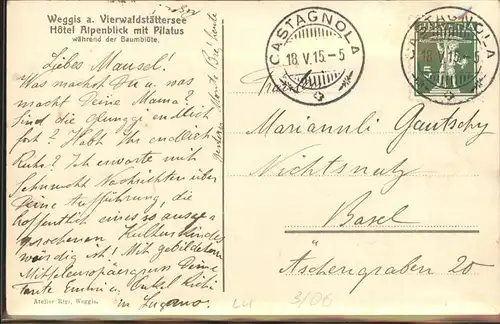 Weggis a. Vierwaldstättersee
Hôtel Alpenblick mit Pilatus
während der Baumblüte.
Liebes Mausel!
Was machst Du u. was
macht Deine Mama?
Sind die endlich
fort? Habt Ihr endlich
Ruhe? Ich erwarte mit
Sehnsucht Nachrichten über
Deine Aufführung, die
hoffentlich eines so ausge-
sprochenen Kulturkindes
würdig ist! Mit gebildetem
Mitteleuropäergruss Deine
Tante Emmy u. Onkel
in Lugano.
Atelier Rigi, Weggis.
CASTAGNOLA
18.V.15.-5
CASTAGNOLA
18.V.15.-5
HELVETIA
5
Mariannli Gautschy
Nichtsnutz
Basel
Äschengraben 20
3/06